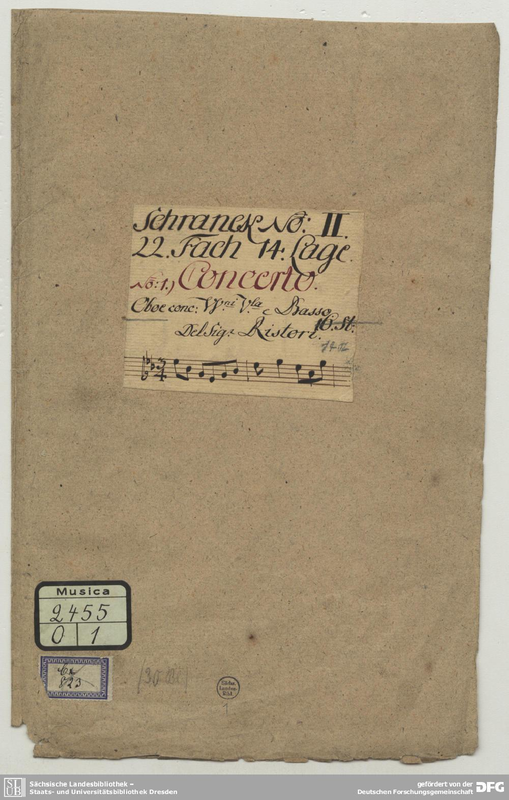 Schranck No: II.
22. Fach 14: Lage.
No: 1.) Concerto.
Oboe conc: Wni Vla e Basso
16. St.
Del Sig: Ristori.
Musica
2455
O 1
823
Sächsische Landesbibliothek –
Staats- und Universitätsbibliothek Dresden
gefördert von der
Deutschen Forschungsgemeinschaft
DFG